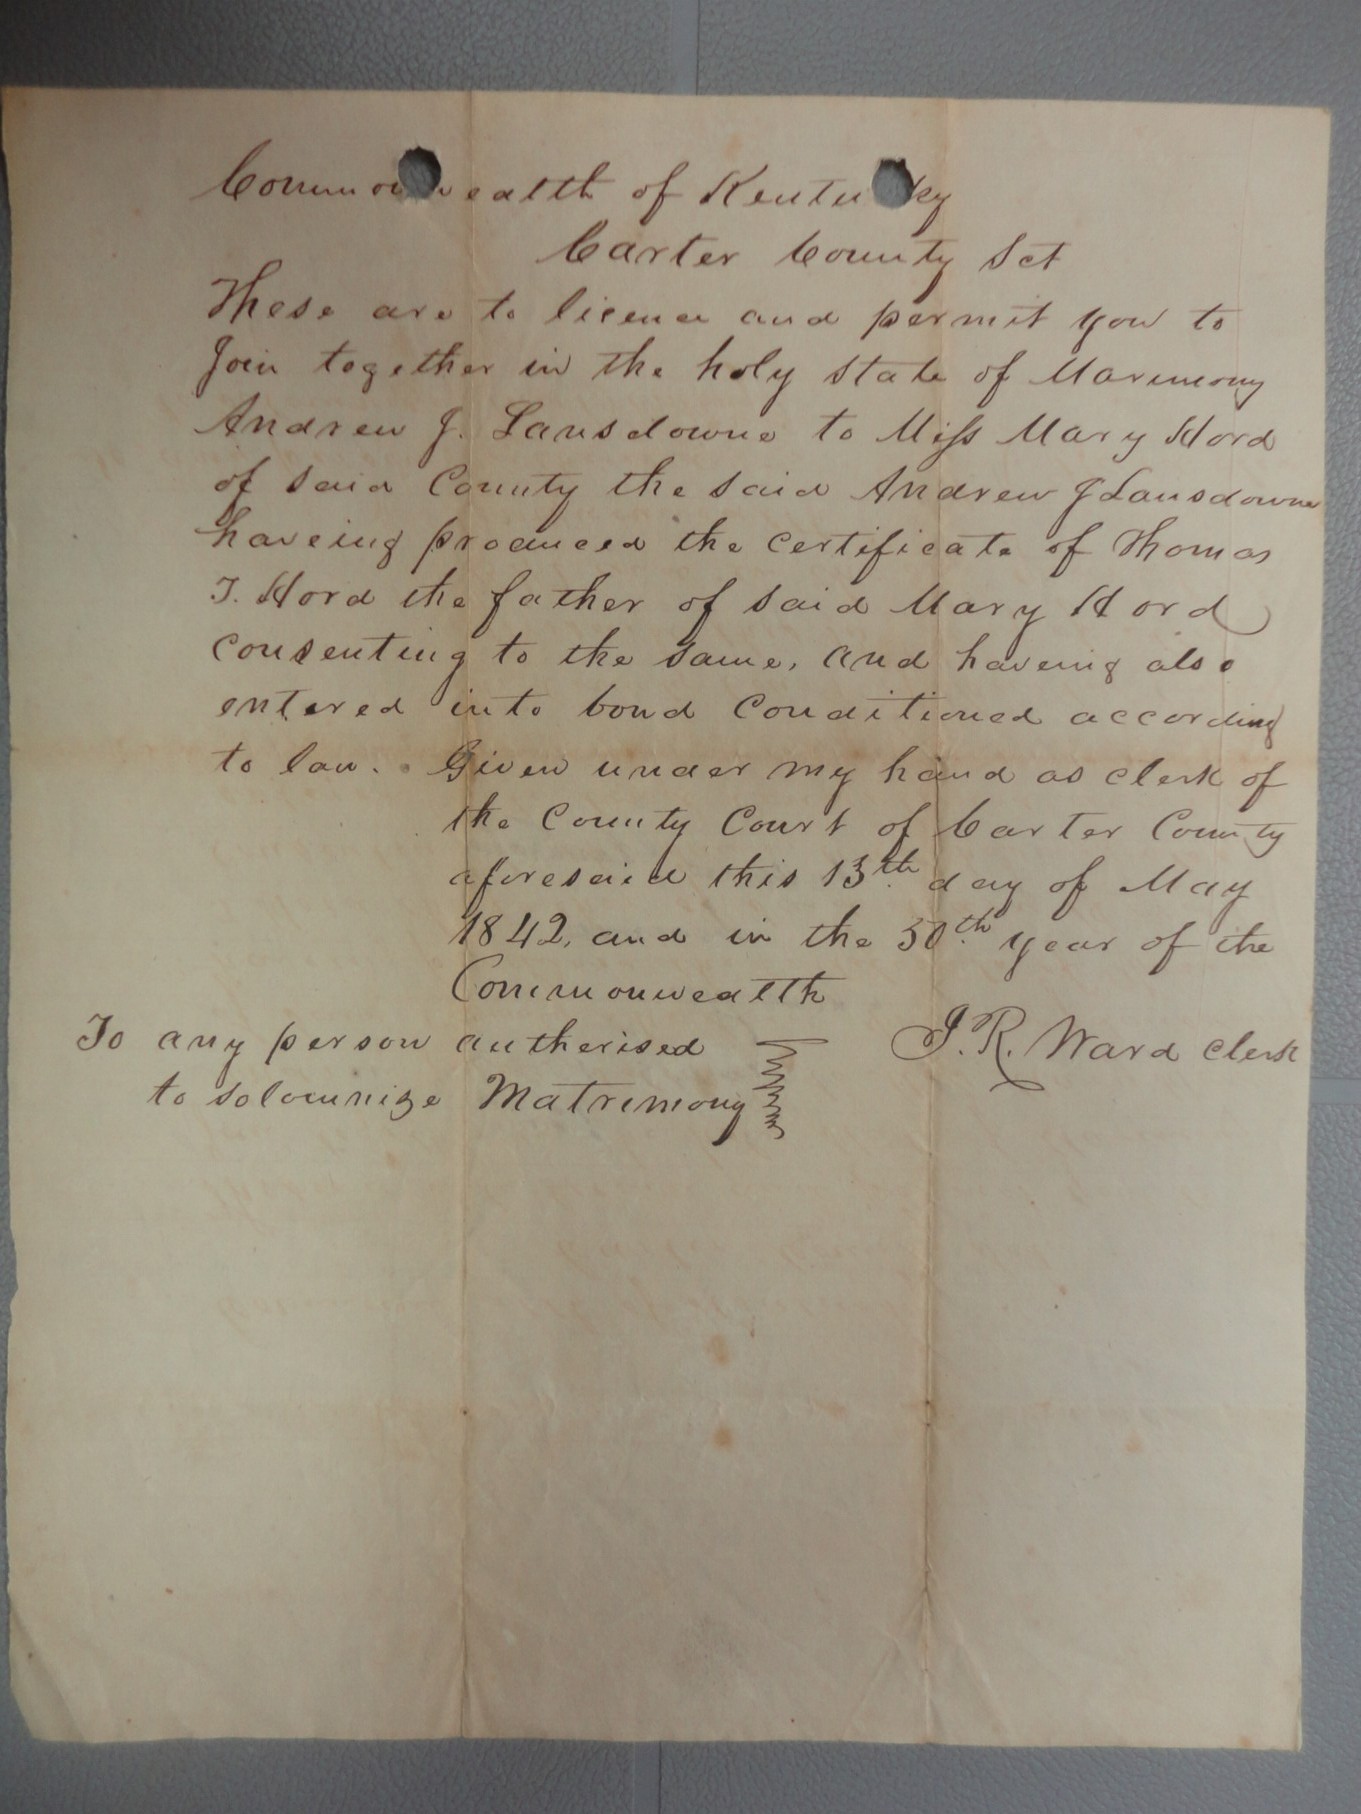 Commonwealth of Kentucky
Carter County Sct
These are to licence and permit you to
Join together in the holy state of Marimony
Andrew J. Lansdowne to Miss Mary Hord
of said County the said Andrew J Lansdowne
haveing produced the certificate of Thomas
T. Hord the father of said Mary Hord
consenting to the same, and haveing also
entered into bond Conditioned according
to law. Given under my hand as clerk of
the County Court of Carter County
aforesaid this 13th day of May
1842, and in the 50th year of the
Commonwealth
To any person autherised
J. R. Ward Clerk
to solomnize Matrimony